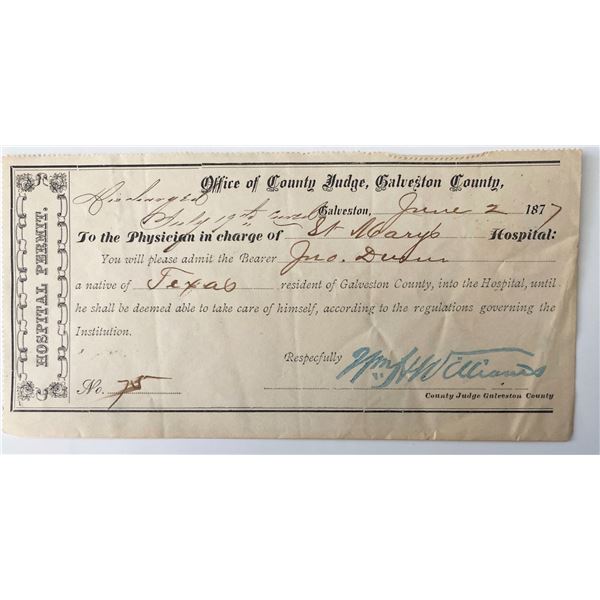 HOSPITAL PERMIT.
Office of County Judge, Galveston County,
Discharged
July 19th
Galveston, June 2 1877
To the Physician in charge of St Mary's Hospital:
You will please admit the Bearer Jno. Dunn
a native of Texas resident of Galveston County, into the Hospital, until
he shall be deemed able to take care of himself, according to the regulations governing the
Institution.
Respecfully Wm H Williams
No. 75
County Judge Galveston County